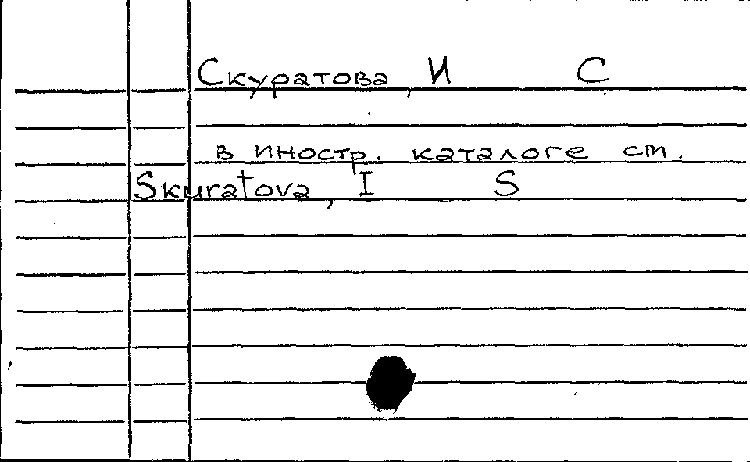 Скуратова, И С
в иностр. каталоге см.
Skuratova, I S